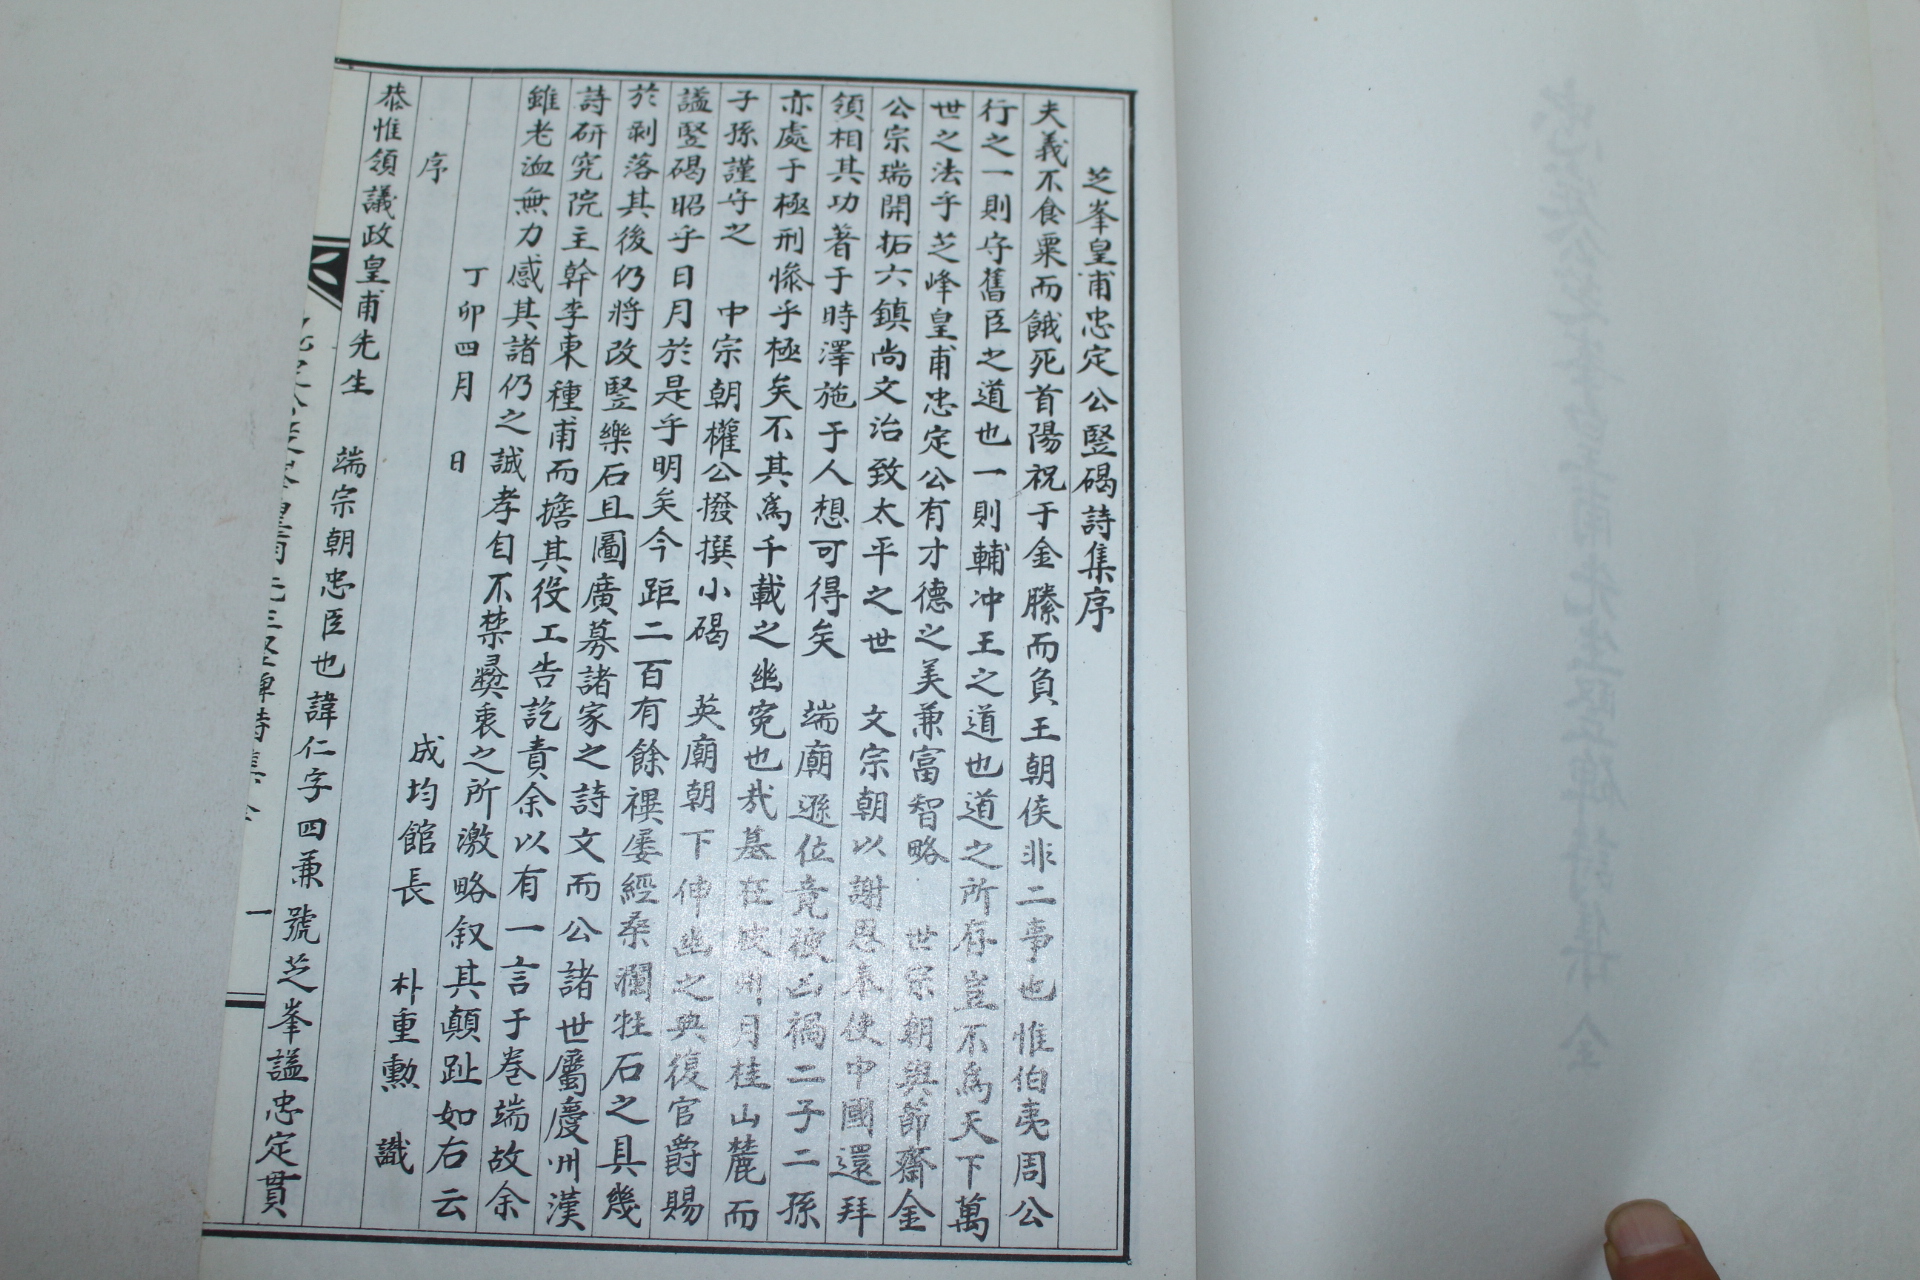 芝峯皇甫忠定公竪碣詩集序
夫義不食粟而餓死首陽祝于金縢而負王朝侯非二事也惟伯夷周公
行之一則守舊臣之道也一則輔冲王之道也道之所存豈不爲天下萬
世之法乎芝峰皇甫忠定公有才德之美兼富智略 世宗朝與節齋金
公宗瑞開拓六鎭尚文治致太平之世 文宗朝以謝恩奉使中國還拜
領相其功著于時澤施于人想可得矣 端廟遜位竟被凶禍二子二孫
亦處于極刑慘乎極矣不其爲千載之幽寃也哉墓在坡州月桂山麓而
子孫謹守之 中宗朝權公撥撰小碣 英廟朝下伸幽之典復官爵賜
諡竪碣昭乎日月於是乎明矣今距二百有餘禩屡經桑瀾牲石之具幾
於剥落其後仍將改竪樂石且圖廣募諸家之詩文而公諸世屬慶州漢
詩研究院主幹李東種甫而擔其役工告訖責余以有一言于卷端故余
雖老洫無力感其諸仍之誠孝自不禁彛衷之所激略叙其顛趾如右云
丁卯四月 日
成均館長 朴重勲 識
序
恭惟領議政皇甫先生 端宗朝忠臣也諱仁字四兼號芝峯諡忠定貫
一